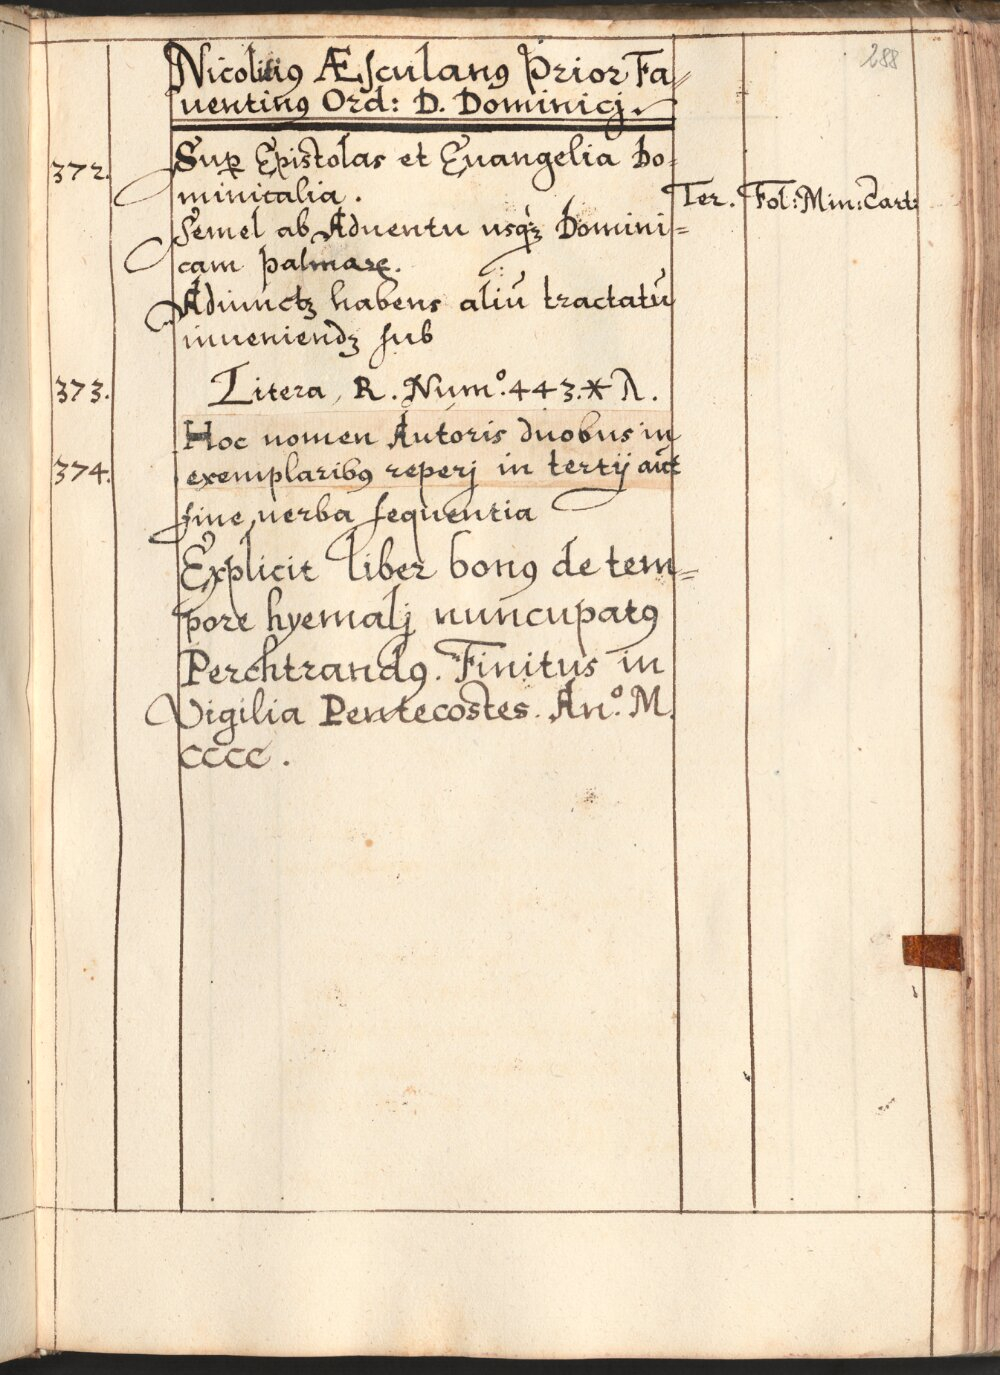 288
Nicolꝰ Æsculanꝰ Prior Fa⸗
uentinꝰ Ord: D. Dominicj.
372. Sup Epistolas et Euangelia Do⸗
minicalia. Ter. Fol: Min: Cart:
Semel ab Aduentu usqꝫ Domini⸗
cam palmarꝫ.
Adiunctꝫ habens aliū tractatū
inueniendꝫ sub
373. Litera, R. Num.º 443.* λ.
Hoc nomen Autoris duobus in
374. exemplaribꝰ reperj in tertij aūt
fine, uerba sequentia
Explicit liber bonꝰ de tem⸗
pore hyemalj nuncupatꝰ
Perchtrandꝰ. Finitus in
Vigilia Pentecostes. An.º M.
CCCC.